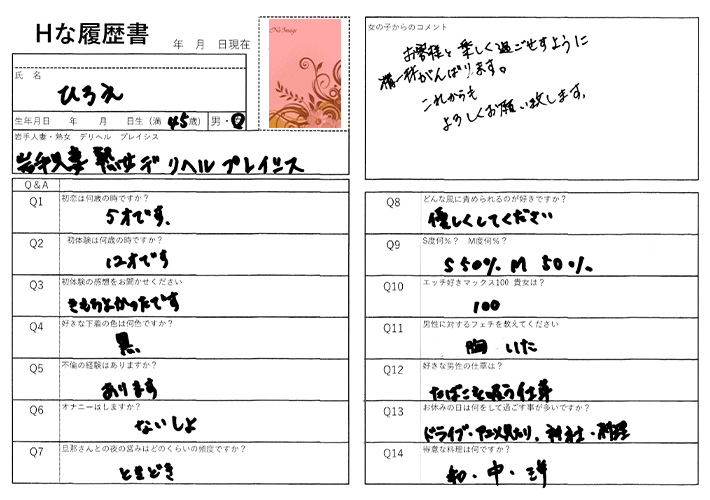 Hな履歴書
年 月 日現在
No Image
氏 名
ひろえ
生年月日 年 月 日生 (満 45 歳) 男・女
岩手人妻・熟女 デリヘル プレイシス
岩手人妻 熟女デリヘル プレイシス
女の子からのコメント
お客様と楽しく過ごせますように
精一杯がんばります。
これからも
よろしくお願い致します。
Q&A
Q1 初恋は何歳の時ですか?
5才です。
Q4 好きな下着の色は何色ですか?
黒
Q5 不倫の経験はありますか?
あります
Q6 オナニーはしますか?
ないしょ
Q7 旦那さんとの夜の営みはどのくらいの頻度ですか?
ときどき
Q8 どんな風に責められるのが好きですか?
優しくしてください
Q9 S度何%? M度何%?
S 50% M 50%
Q10 エッチ好きマックス100 貴女は?
100
Q11 男性に対するフェチを教えてください
胸
Q12 好きな男性の仕草は?
たばこを吸う仕草
Q13 お休みの日は何をして過ごす事が多いですか?
ドライブ・アニメ見たり、神社・料理
Q14 得意な料理は何ですか?
和・中・洋